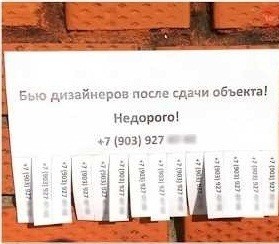 Бью дизайнеров после сдачи объекта!
Недорого!
+7 (903) 927
+7 (903) 927
+7 (903) 927
+7 (903) 927
+7 (903) 927
+7 (903) 927
+7 (903) 927
+7 (903) 927
+7 (903) 927
+7 (903) 927
+7 (903) 927